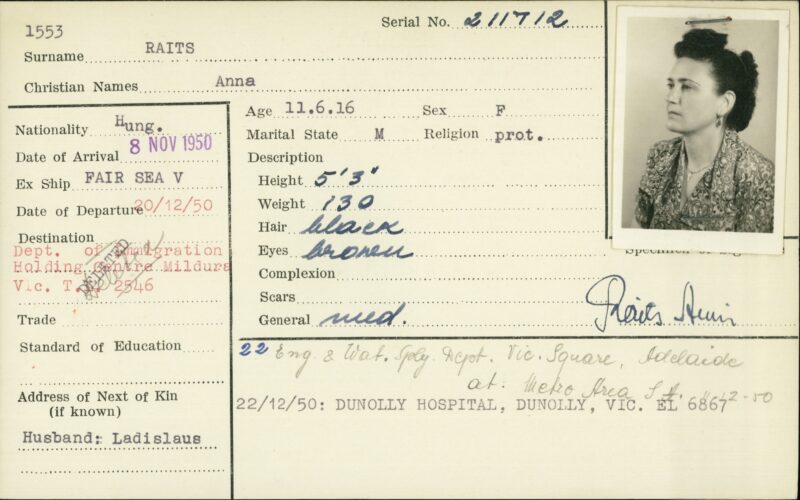 1553
Serial No. 211712
Surname RAITS
Christian Names Anna
Nationality Hung.
Date of Arrival 8 NOV 1950
Ex Ship FAIR SEA V
Date of Departure 20/12/50
Destination
Dept. of Immigration
Holding Centre Mildura
Vic. T. 2546
DELETED
Trade
Standard of Education
Address of Next of Kin
(if known)
Husband: Ladislaus
Age 11.6.16 Sex F
Marital State M Religion prot.
Description
Height 5'3"
Weight 130
Hair black
Eyes brown
Complexion
Scars
General med.
Specimen of
Raits
22 Eng. & Wat. Sply. Dept. Vic. Square, Adelaide
at: Metro Area S.A. 12-50
22/12/50: DUNOLLY HOSPITAL, DUNOLLY, VIC. EL 6867